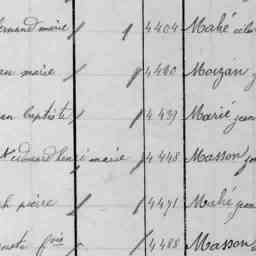 ernand marie / / 4404 Mahé
an marie / / 4480 Moizan
an baptiste / / 4439 Marié jean
édouard henri marie / / 4448 Masson
h pierre / / 4471 Mahé jean
/ / 4488 Masson